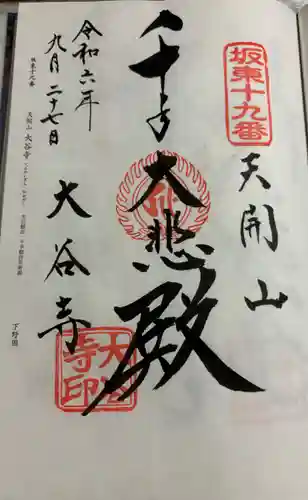 坂東十九番
天開山
千手大悲殿
大谷寺
大谷寺印
令和六年
九月二十七日
坂東十九番
天開山 大谷寺
下野国